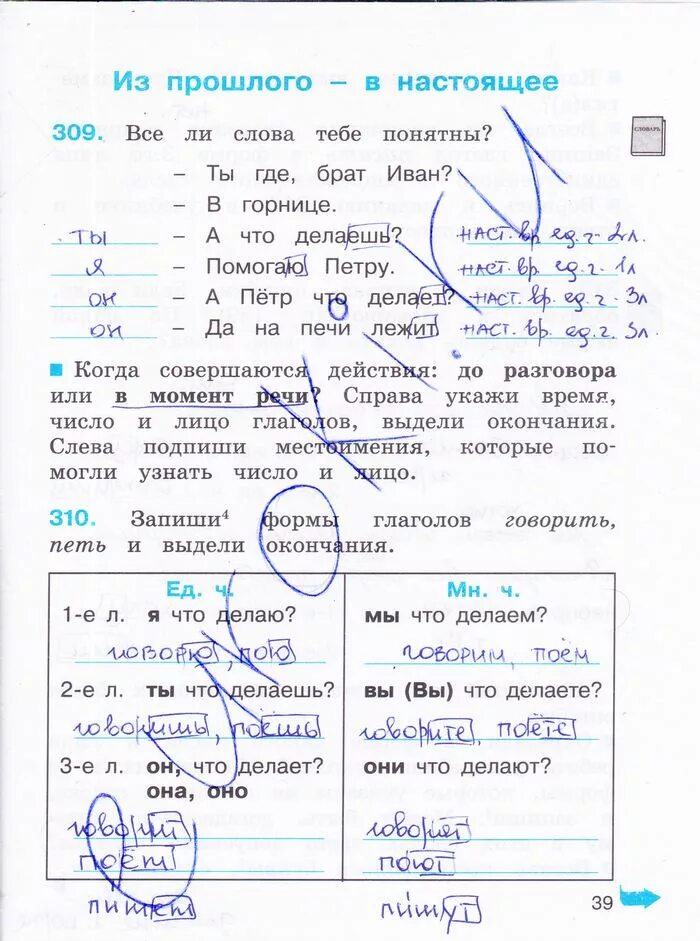 Из прошлого – в настоящее
309. Все ли слова тебе понятны?
СЛОВАРЬ
– Ты где, брат Иван?
– В горнице.
ты – А что делаешь? наст. вр. ед. ч. 2л.
я – Помогаю Петру. наст. вр. ед. ч. 1л
он – А Пётр что делает? наст. вр. ед. ч. 3л
он – Да на печи лежит. наст. вр. ед. ч. 3л.
Когда совершаются действия: до разговора
или в момент речи? Справа укажи время,
число и лицо глаголов, выдели окончания.
Слева подпиши местоимения, которые по-
могли узнать число и лицо.
310. Запиши⁴ формы глаголов говорить,
петь и выдели окончания.
Ед. ч. Мн. ч.
1-е л. я что делаю? мы что делаем?
говорю, пою говорим, поём
2-е л. ты что делаешь? вы (Вы) что делаете?
говоришь, поёшь говорите, поёте
3-е л. он, что делает? они что делают?
она, оно
говорит говорят
поёт поют
пишет пишут
39